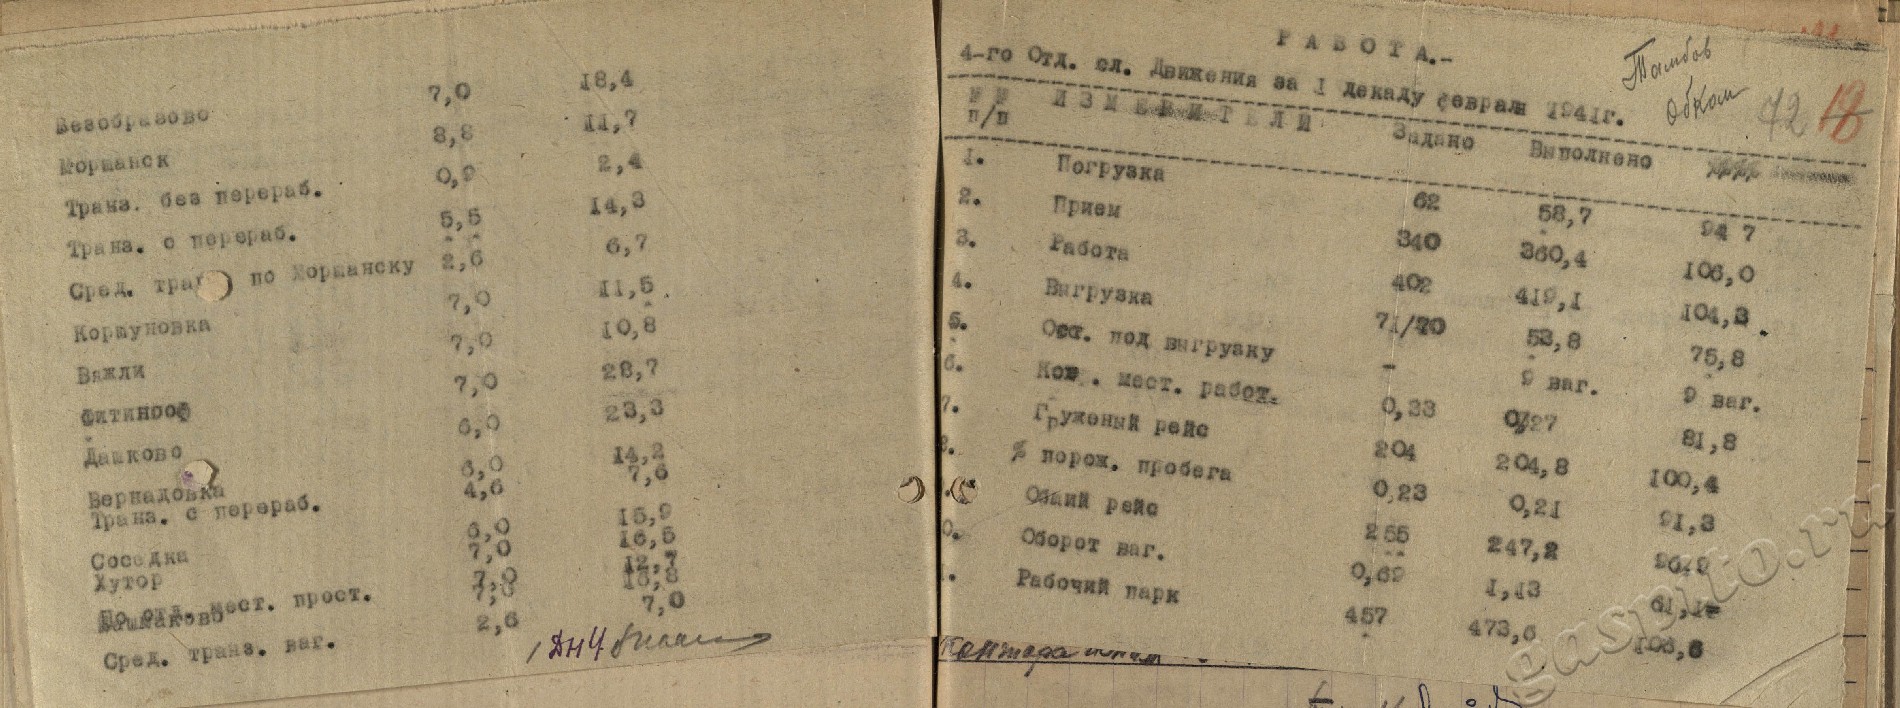 Безобразово 7,0 18,4
Моршанск 8,8 11,7
Транз. без перераб. 0,9 2,4
Транз. с перераб. 5,5 14,3
Сред. тран по Моршанску 2,6 6,7
Коршуновка 7,0 11,5
Вяжли 7,0 10,8
Фитингоф 7,0 28,7
Дашково 6,0 23,3
Вернадовка 6,0 14,2
Транз. с перераб. 4,6 7,6
Соседка 6,0 15,9
Хутор 7,0 16,5
По отд. мест. прост. 7,0 12,7
Башмаково 7,0 16,8
Сред. транз. ваг. 2,6 7,0
ДНЧ
Р А Б О Т А.-
4-го Отд. сл. Движения за 1 декаду февраля 1941г.
Тамбов
Обком
72 18
№№ п/п И З М Е Р И Т Е Л И Задано Выполнено
1. Погрузка 62 58,7 94 7
2. Прием 340 360,4 106,0
3. Работа 402 419,1 104,3
4. Выгрузка 71/70 53,8 75,8
5. Ост. под выгрузку - 9 ваг. 9 ваг.
6. Коэ. мест. работ. 0,33 0,27 81,8
7. Груженый рейс 204 204,8 100,4
8. % порож. пробега 0,23 0,21 91,3
. Общий рейс 255 247,2 96,9
0. Оборот ваг. 0,69 1,13 61,1
1. Рабочий парк 457 473,6 103,6
gaspito.ru